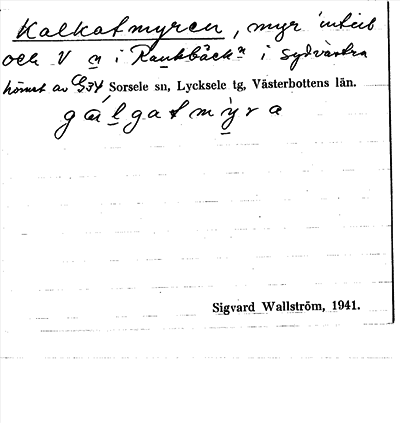 Kalkatmyren, myr intill
och V a i Raukbäckn i sydvästra
hörnet av G34, Sorsele sn, Lycksele tg, Västerbottens län.
gálgatmyra
Sigvard Wallström, 1941.